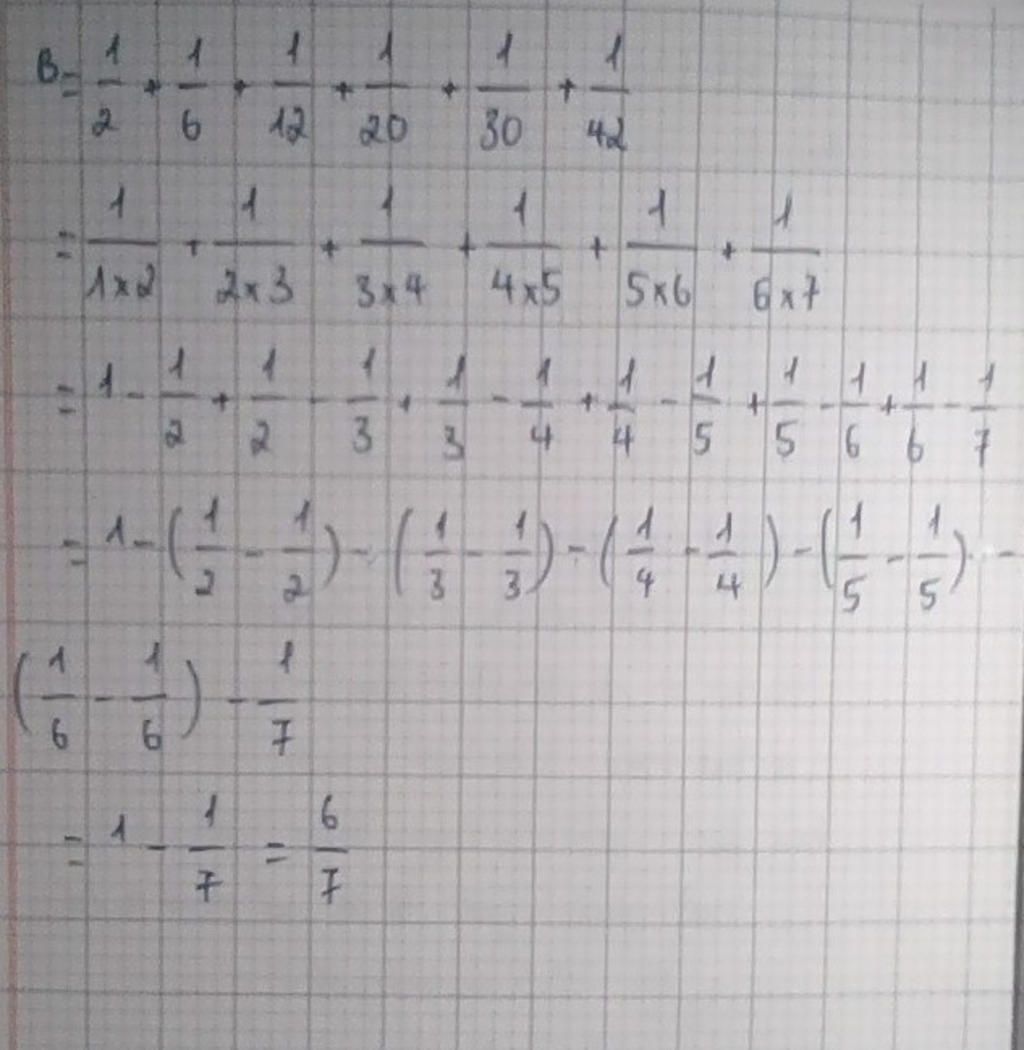 B = 1/2 + 1/6 + 1/12 + 1/20 + 1/30 + 1/42
= 1/1×2 + 1/2×3 + 1/3×4 + 1/4×5 + 1/5×6 + 1/6×7
= 1 - 1/2 + 1/2 - 1/3 + 1/3 - 1/4 + 1/4 - 1/5 + 1/5 - 1/6 + 1/6 - 1/7
= 1 - (1/2 - 1/2) - (1/3 - 1/3) - (1/4 - 1/4) - (1/5 - 1/5) -
(1/6 - 1/6) - 1/7
= 1 - 1/7 = 6/7